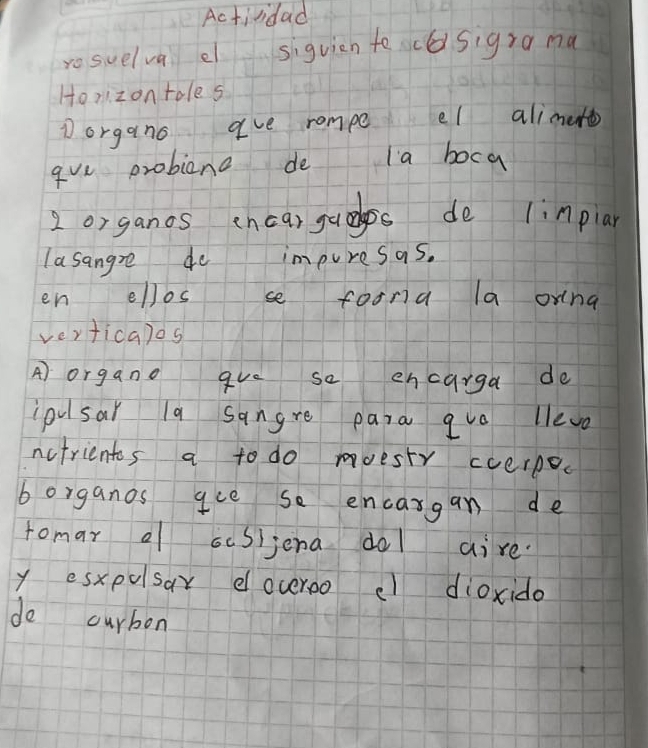 Actividad
rosuelva el siguiente cosigrama
Horizontales
1) organo que rompe el alimento
que probiene de la boca
2 organos encargados de limpiar
la sangre de impuresas.
en ellos se forma la orina
verticales
A) organo que se encarga de
ipulsar la sangre para que lleve
nutrientos a todo muestr cuerpo.
b organos que se encargan de
tomar el ocsijena del aire.
y esxpulsar el cuerpo el dioxido
de curbon